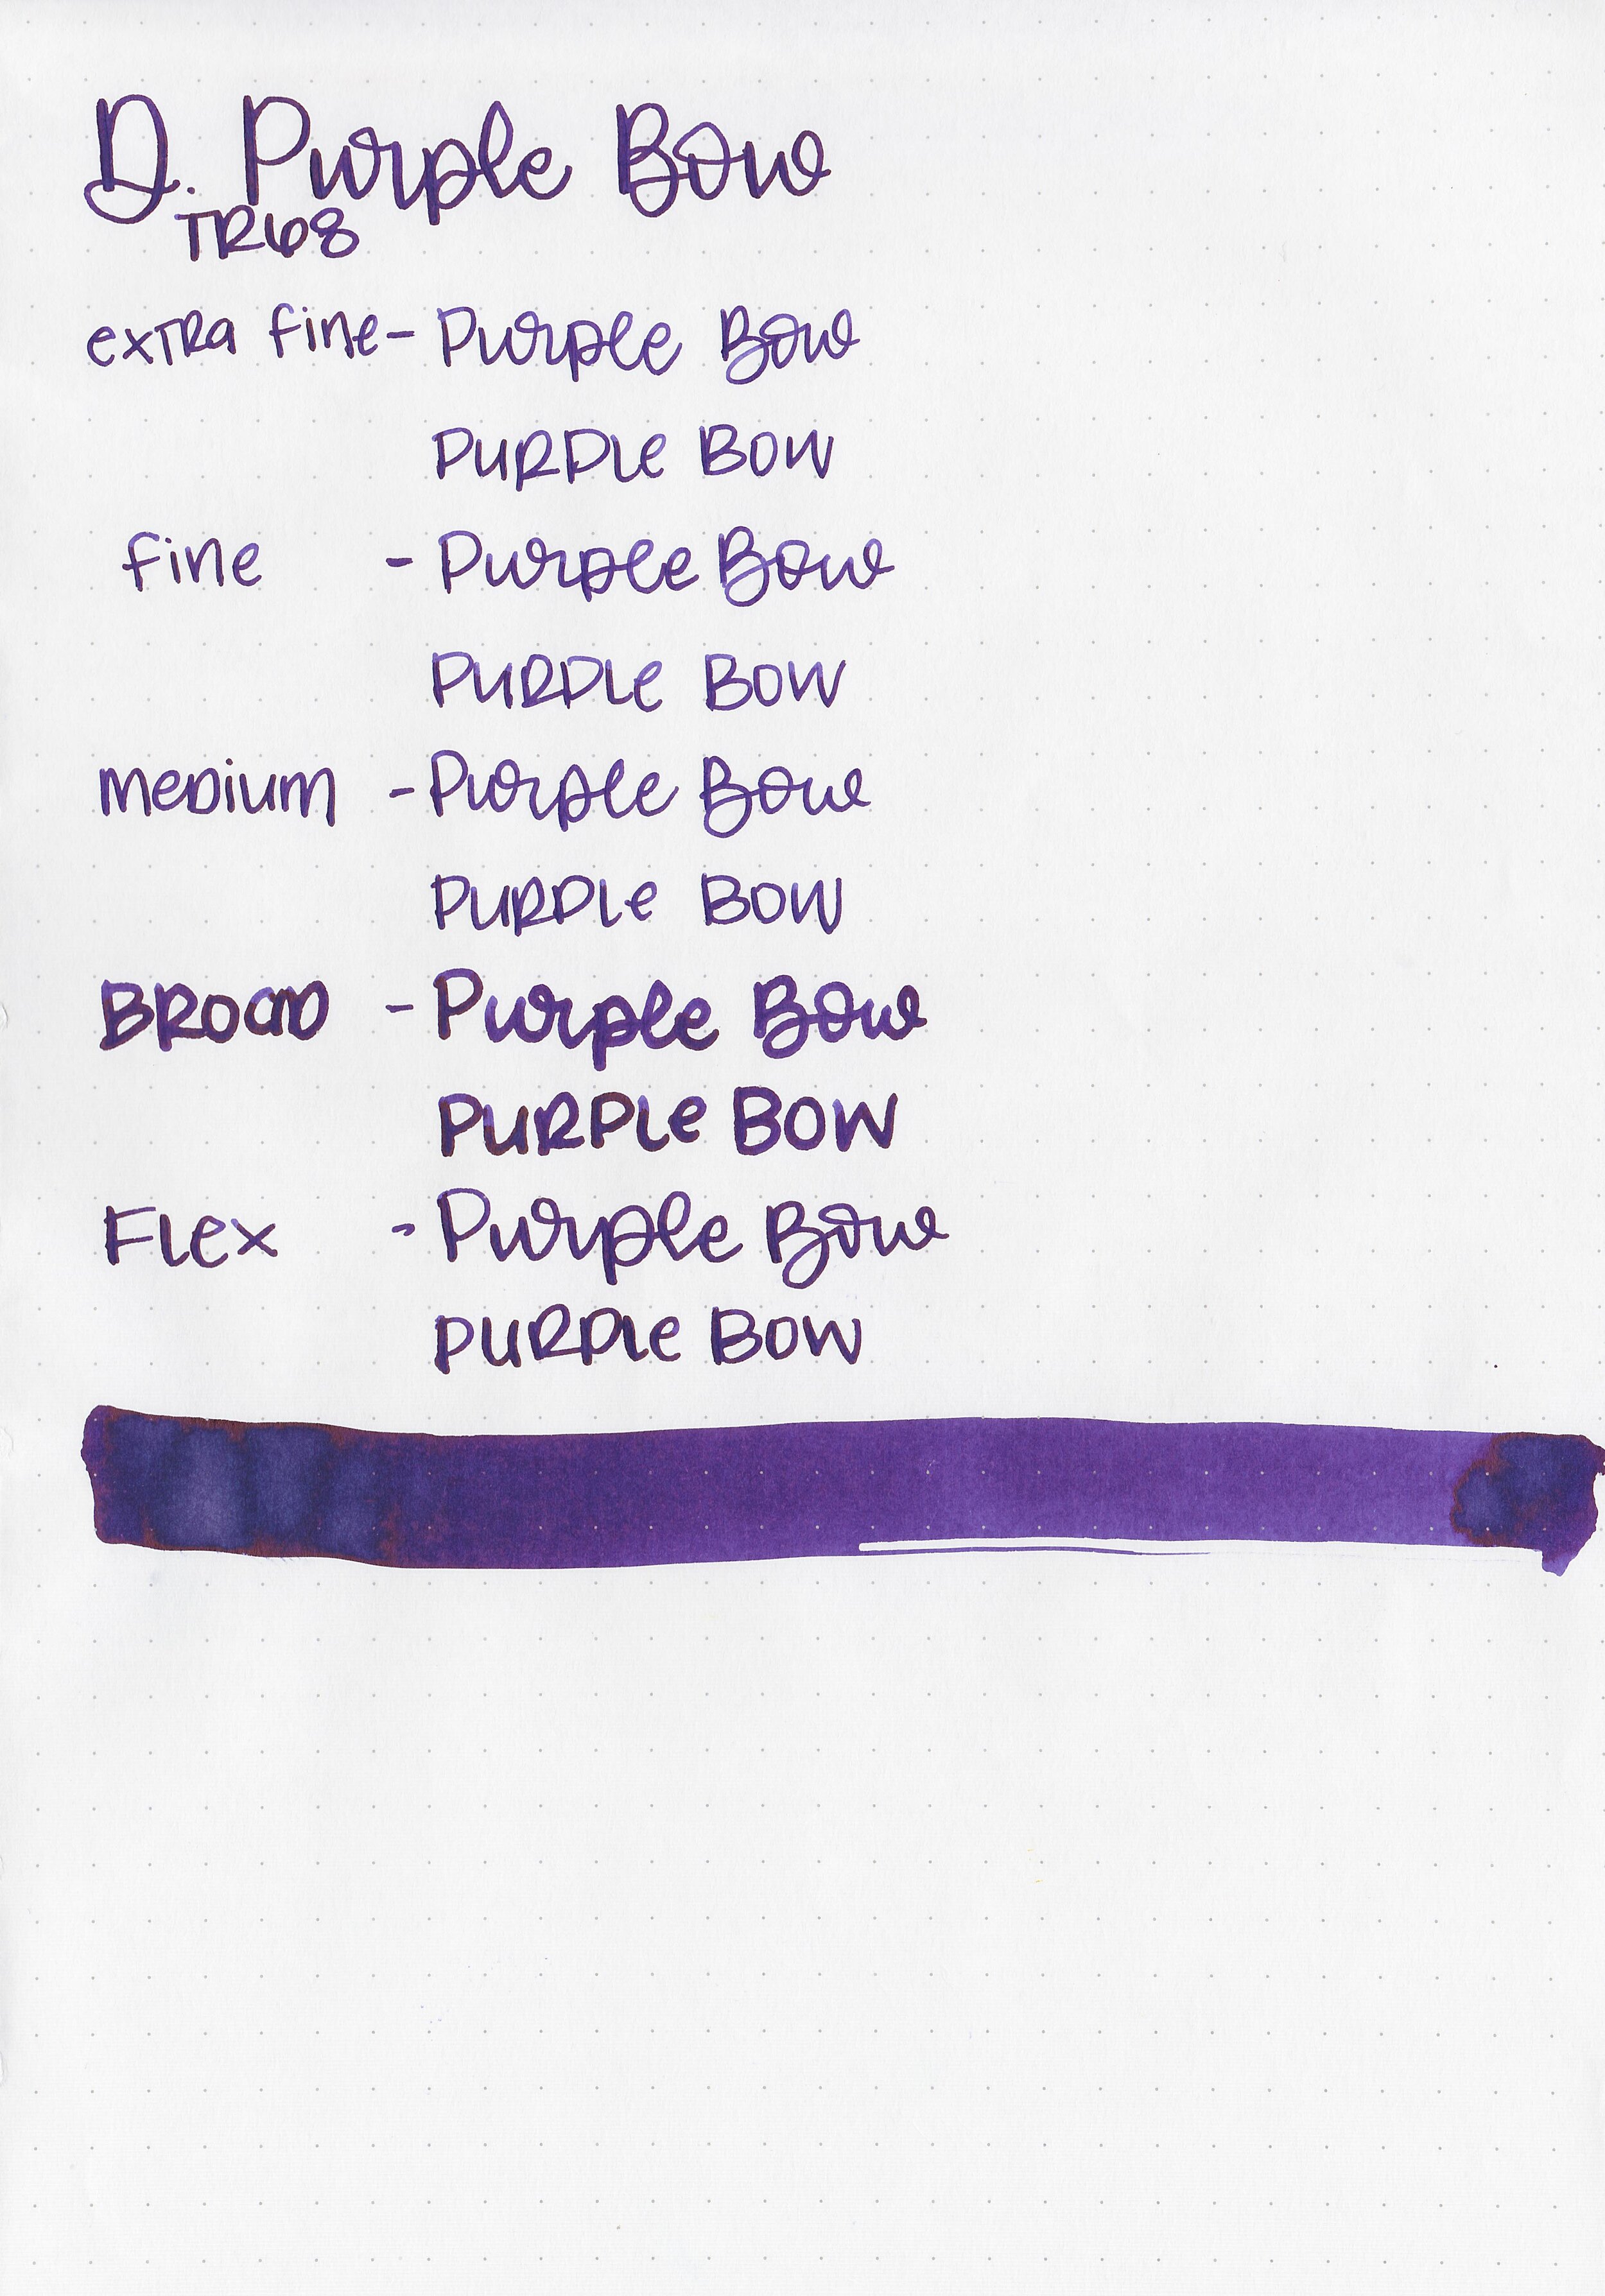 D. Purple Bow
TR68
extra fine - Purple Bow
PURPLe BOW
fine - Purple Bow
PURPLe BOW
meDium - Purple Bow
PURPLe BOW
BROaD - Purple Bow
PURPLe BOW
FLex - Purple Bow
PURPLe BOW